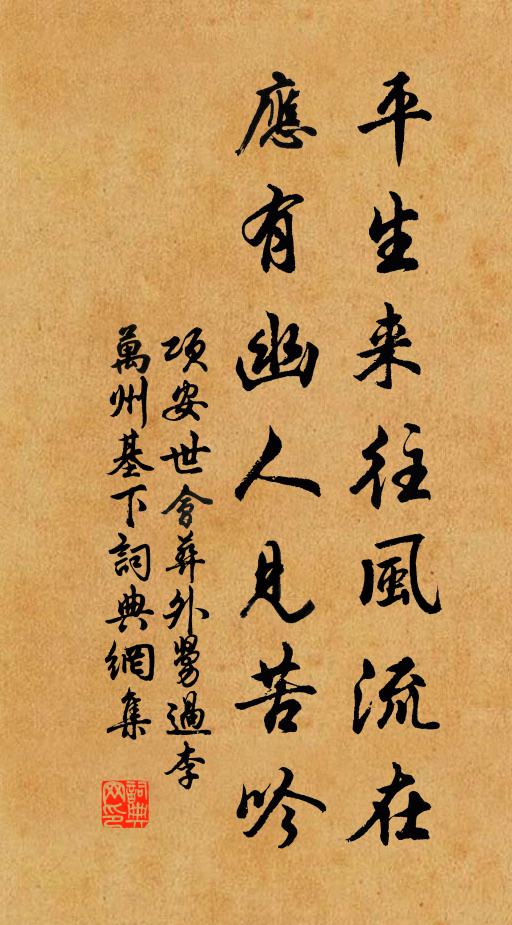 平生来往風流在
應有幽人見苦吟
項安世會葬外舅過李
萬州基下詞典網集
詞典
网印